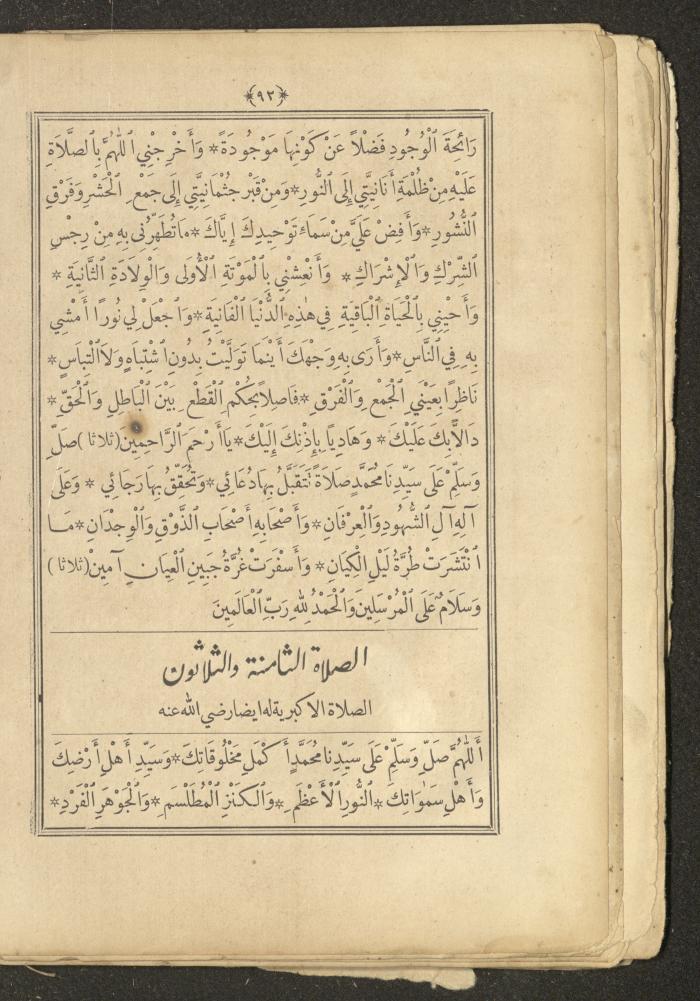 ﴿٩٢﴾
رَائِحَةَ الْوُجُودِ فَضْلاً عَنْ كَوْنِهَا مَوْجُودَةً * وَأَخْرِجْنِي اللّٰهُمَّ بِالصَّلَاةِ
عَلَيْهِ مِنْ ظُلْمَةِ أَنَانِيَّتِي إِلَى النُّورِ * وَمِنْ قَبْرِ جُثْمَانِيَّتِي إِلَى جَمْعِ الْحَشْرِ وَفَرْقِ
النُّشُورِ * وَأَفِضْ عَلَيَّ مِنْ سَمَاءِ تَوْحِيدِكَ إِيَّاكَ * مَا تُطَهِّرُنِي بِهِ مِنْ رِجْسِ
الشِّرْكِ وَالْإِشْرَاكِ * وَأَنْعِشْنِي بِالْمَوْتَةِ الْأُولَى وَالْوِلَادَةِ الثَّانِيَةِ *
وَأَحْيِنِي بِالْحَيَاةِ الْبَاقِيَةِ فِي هٰذِهِ الدُّنْيَا الْفَانِيَةِ * وَاجْعَلْ لِي نُورًا أَمْشِي
بِهِ فِي النَّاسِ * وَأَرَى بِهِ وَجْهَكَ أَيْنَمَا تَوَلَّيْتُ بِدُونِ اشْتِبَاهٍ وَلَا الْتِبَاسٍ *
نَاظِرًا بِعَيْنَيِ الْجَمْعِ وَالْفَرْقِ * فَاصِلاً بِحُكْمِ الْقَطْعِ بَيْنَ الْبَاطِلِ وَالْحَقِّ *
دَالاًّ بِكَ عَلَيْكَ * وَهَادِيًا بِإِذْنِكَ إِلَيْكَ * يَا أَرْحَمَ الرَّاحِمِينَ (ثلاثا) صَلِّ
وَسَلِّمْ عَلَى سَيِّدِنَا مُحَمَّدٍ صَلَاةً تَتَقَبَّلُ بِهَا دُعَائِي * وَتُحَقِّقُ بِهَا رَجَائِي * وَعَلَى
آلِهِ آلِ الشُّهُودِ وَالْعِرْفَانِ * وَأَصْحَابِهِ أَصْحَابِ الذَّوْقِ وَالْوِجْدَانِ * مَا
انْتَشَرَتْ طُرَّةُ لَيْلِ الْكِيَانِ * وَأَسْفَرَتْ غُرَّةُ جَبِينِ الْعِيَانِ آمِينْ (ثلاثا)
وَسَلَامٌ عَلَى الْمُرْسَلِينَ وَالْحَمْدُ لِلّٰهِ رَبِّ الْعَالَمِينَ
الصلاة الثامنة والثلاثون
الصلاة الاكبرية له ايضا رضي الله عنه
أَللّٰهُمَّ صَلِّ وَسَلِّمْ عَلَى سَيِّدِنَا مُحَمَّدٍ أَكْمَلِ مَخْلُوقَاتِكَ * وَسَيِّدِ أَهْلِ أَرْضِكَ
وَأَهْلِ سَمٰوَاتِكَ * النُّورِ الْأَعْظَمِ * وَالْكَنْزِ الْمُطَلْسَمِ * وَالْجَوْهَرِ الْفَرْدِ *